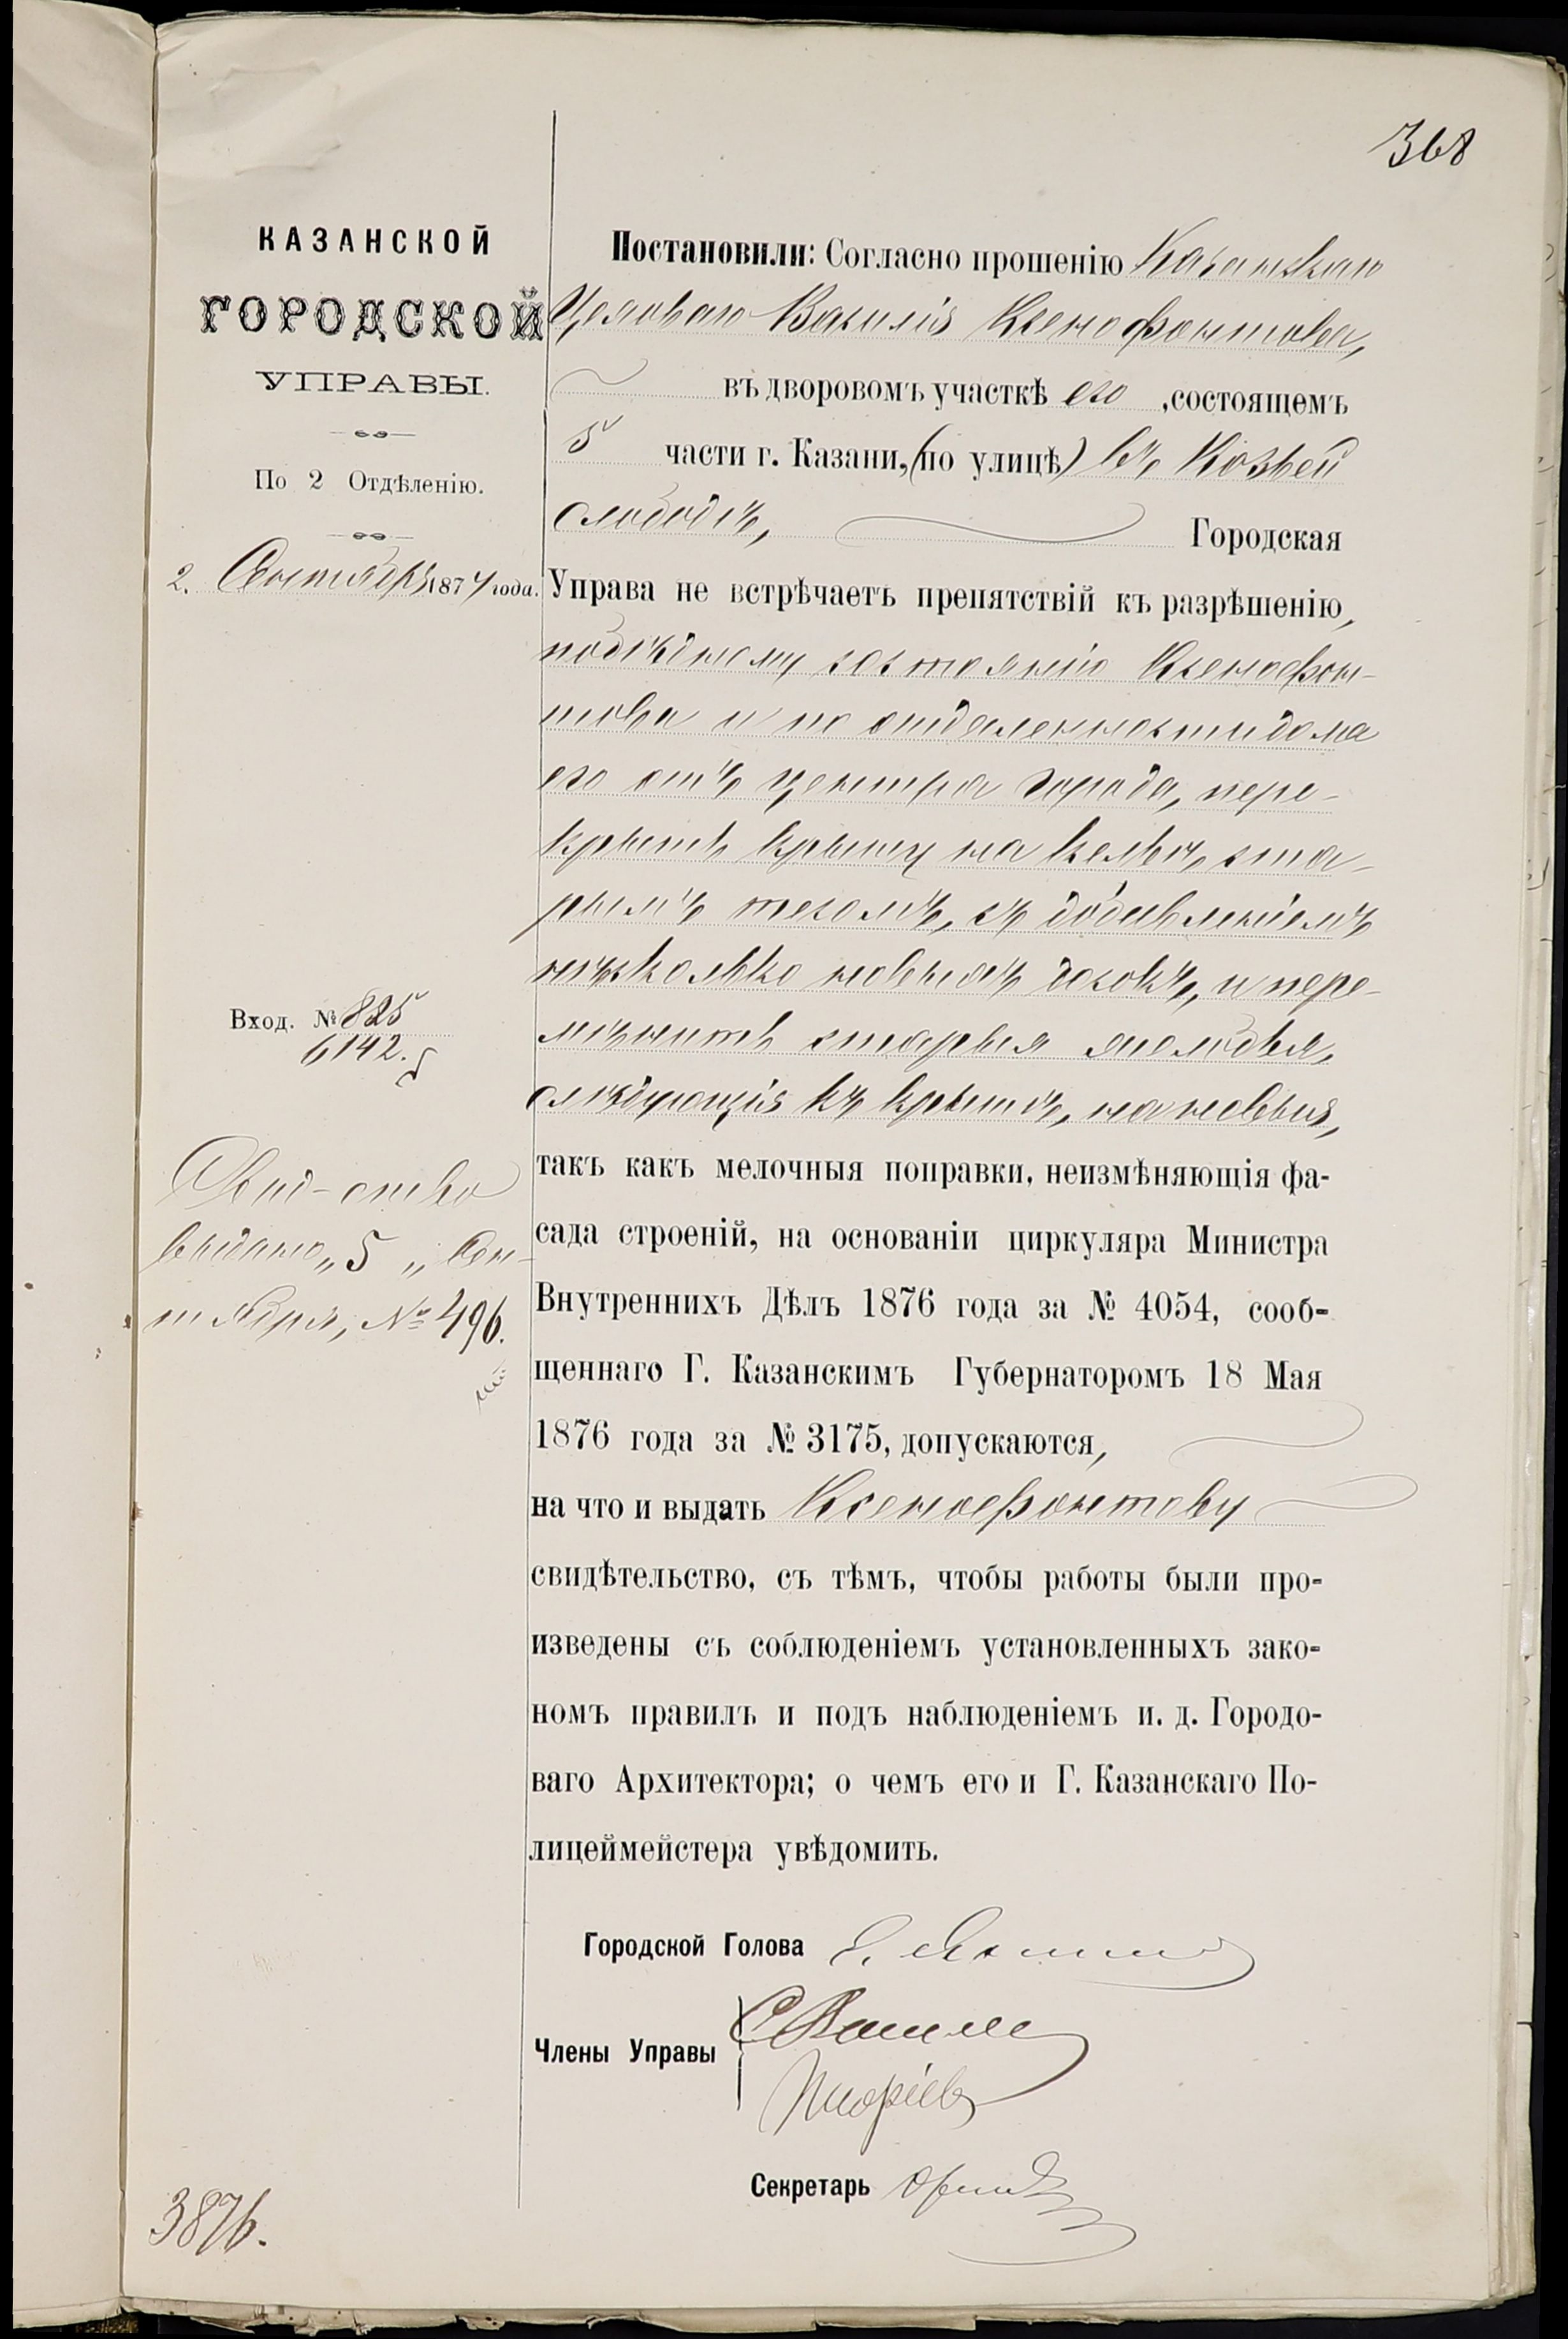 368
КАЗАНСКОЙ
ГОРОДСКОЙ
УПРАВЫ.
По 2 Отдѣленію.
2. Сентября 1877 года.
Вход. № 825
6142.
Свид-ство
выдано „5„ Сен-
тября, № 496.
3876.
Постановили: Согласно прошенію Казанскаго
Цеховаго Василія Ксенофонтова,
въ дворовомъ участкѣ его, состоящемъ
5 части г. Казани, (по улицѣ) въ Козьей
слободѣ, Городская
Управа не встрѣчаетъ препятствій къ разрѣшенію,
по бѣдному состоянію Ксенофон-
това и по отдаленности дома
его отъ центра города, пере-
крыть крышу на кельѣ, ста-
рымъ тесомъ, съ добавленіемъ
нѣсколько новыхъ досокъ, и пере-
мѣнить старыя желобья,
слѣдующія къ крышѣ, на новыя,
такъ какъ мелочныя поправки, неизмѣняющія фа-
сада строеній, на основаніи циркуляра Министра
Внутреннихъ Дѣлъ 1876 года за № 4054, сооб-
щеннаго Г. Казанскимъ Губернаторомъ 18 Мая
1876 года за № 3175, допускаются,
на что и выдать Ксенофонтову
свидѣтельство, съ тѣмъ, чтобы работы были про-
изведены съ соблюденіемъ установленныхъ зако-
номъ правилъ и подъ наблюденіемъ и. д. Городо-
ваго Архитектора; о чемъ его и Г. Казанскаго По-
лицеймейстера увѣдомить.
Городской Голова
Члены Управы
Секретарь